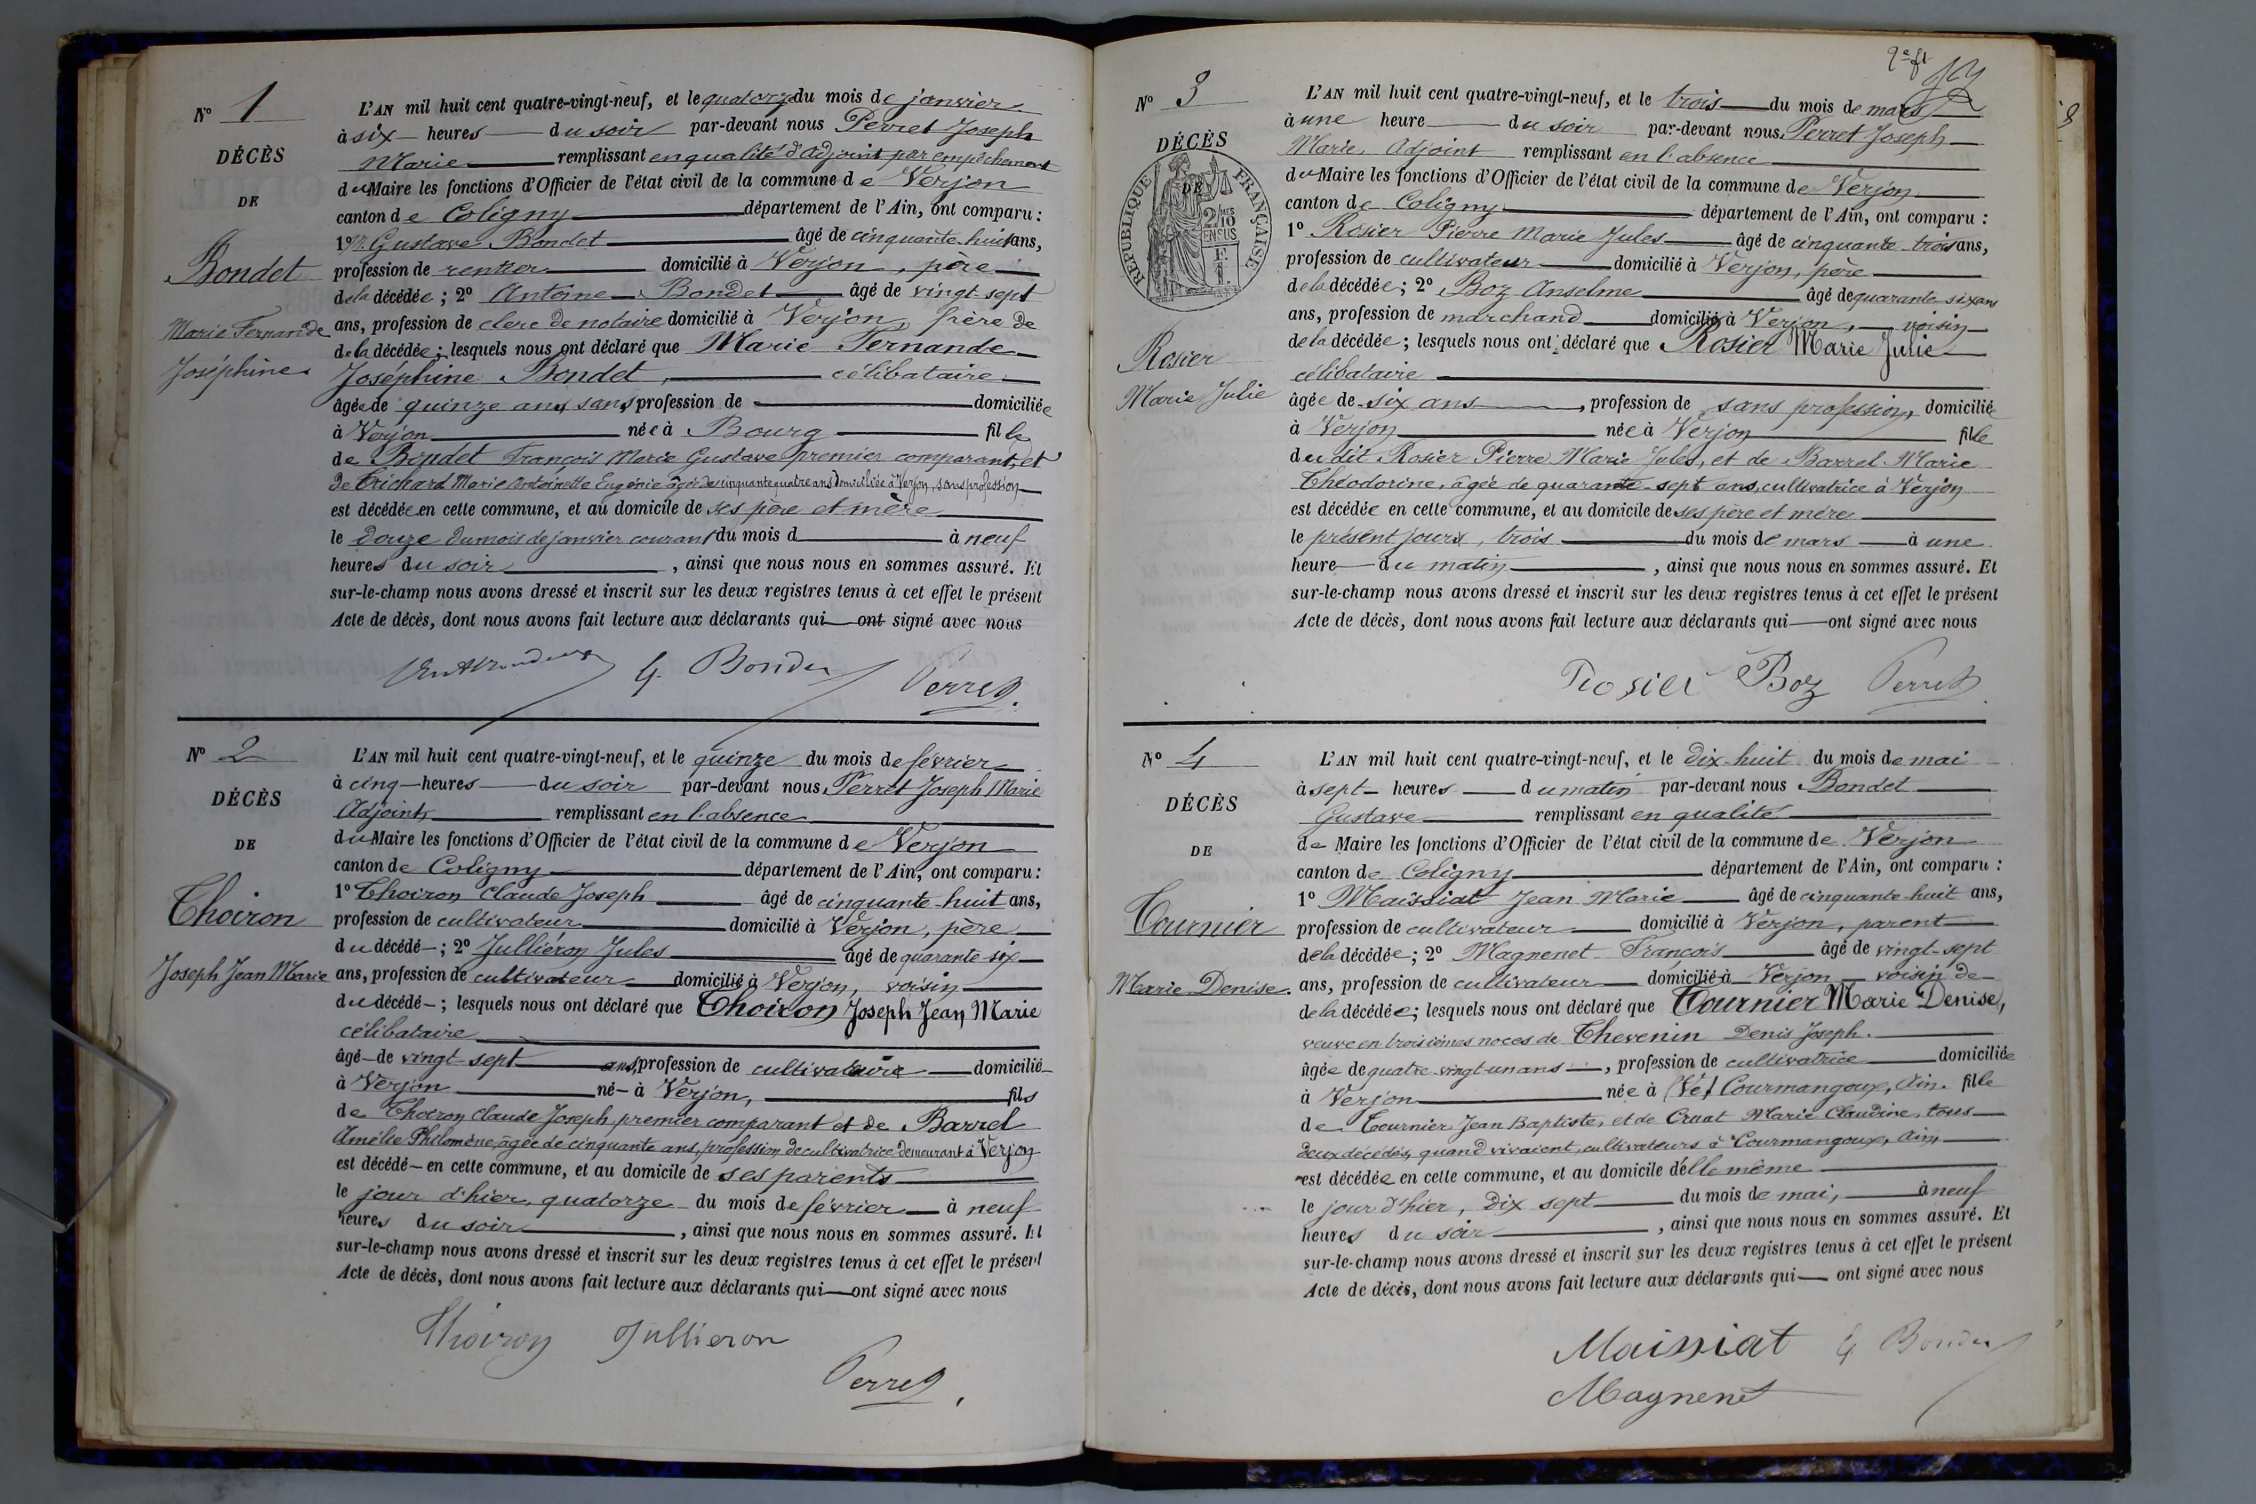 N° 1
DÉCÈS
DE
Bondet
Marie Fernande
Joséphine
L'AN mil huit cent quatre-vingt-neuf, et le quatorze du mois de janvier
à six heures du soir par-devant nous Perret Joseph
Marie remplissant en qualité d'adjoint par empêchement
du Maire les fonctions d'Officier de l'état civil de la commune de Verjon
canton de Coligny département de l'Ain, ont comparu :
1° Mr Gustave Bondet âgé de cinquante-huit ans,
profession de rentier domicilié à Verjon, père
de la décédée ; 2° Antoine Bondet âgé de vingt-sept
ans, profession de clerc de notaire domicilié à Verjon, frère de
de la décédée ; lesquels nous ont déclaré que Marie Fernande
Joséphine Bondet, célibataire
âgée de quinze ans, sans profession de domiciliée
à Verjon née à Bourg fille
de Bondet François Marie Gustave premier comparant, et
de Trichard Marie Antoinette Eugénie âgée de cinquante quatre ans domiciliée à Verjon, sans profession
est décédée en cette commune, et au domicile de ses père et mère
le douze du mois de janvier courant du mois d à neuf
heures du soir, ainsi que nous nous en sommes assuré. Et
sur-le-champ nous avons dressé et inscrit sur les deux registres tenus à cet effet le présent
Acte de décès, dont nous avons fait lecture aux déclarants qui ont signé avec nous
G. Bondet Perret
N° 2
DÉCÈS
DE
Thoiron
Joseph Jean Marie
L'AN mil huit cent quatre-vingt-neuf, et le quinze du mois de février
à cinq heures du soir par-devant nous Perret Joseph Marie
Adjoint remplissant en l'absence
du Maire les fonctions d'Officier de l'état civil de la commune de Verjon
canton de Coligny département de l'Ain, ont comparu :
1° Thoiron Claude Joseph âgé de cinquante-huit ans,
profession de cultivateur domicilié à Verjon, père
du décédé ; 2° Julliéron Jules âgé de quarante-six
ans, profession de cultivateur domicilié à Verjon, voisin
du décédé ; lesquels nous ont déclaré que Thoiron Joseph Jean Marie
célibataire
âgé de vingt-sept ans, profession de cultivateur domicilié
à Verjon né à Verjon, fils
de Thoiron Claude Joseph premier comparant et de Barrel
Amélie Philomène, âgée de cinquante ans, profession de cultivatrice demeurant à Verjon
est décédé en cette commune, et au domicile de ses parents
le jour d'hier, quatorze du mois de février à neuf
heures du soir, ainsi que nous nous en sommes assuré. Et
sur-le-champ nous avons dressé et inscrit sur les deux registres tenus à cet effet le présent
Acte de décès, dont nous avons fait lecture aux déclarants qui ont signé avec nous
Thoiron Jullieron
Perret
2e ft
N° 3
DÉCÈS
DE
RÉPUBLIQUE FRANÇAISE
2/10 EN SUS
Rosier
Marie Julie
L'AN mil huit cent quatre-vingt-neuf, et le trois du mois de mars
à une heure du soir par-devant nous Perret Joseph
Marie, Adjoint remplissant en l'absence
du Maire les fonctions d'Officier de l'état civil de la commune de Verjon
canton de Coligny département de l'Ain, ont comparu :
1° Rosier Pierre Marie Jules âgé de cinquante-trois ans,
profession de cultivateur domicilié à Verjon, père
de la décédée ; 2° Boz Anselme âgé de quarante-six ans
ans, profession de marchand domicilié à Verjon, voisin
de la décédée ; lesquels nous ont déclaré que Rosier Marie Julie
célibataire
âgée de six ans, profession de sans profession, domiciliée
à Verjon née à Verjon fille
du dit Rosier Pierre Marie Jules, et de Barrel Marie
Théodorine, âgée de quarante-sept ans, cultivatrice à Verjon
est décédée en cette commune, et au domicile de ses père et mère
le présent jour, trois du mois de mars à une
heure du matin, ainsi que nous nous en sommes assuré. Et
sur-le-champ nous avons dressé et inscrit sur les deux registres tenus à cet effet le présent
Acte de décès, dont nous avons fait lecture aux déclarants qui ont signé avec nous
Rosier Boz Perret
N° 4
DÉCÈS
DE
Tournier
Marie Denise.
L'AN mil huit cent quatre-vingt-neuf, et le dix-huit du mois de mai
à sept heures du matin par-devant nous Bondet
Gustave remplissant en qualité
de Maire les fonctions d'Officier de l'état civil de la commune de Verjon
canton de Coligny département de l'Ain, ont comparu :
1° Maissiat Jean Marie âgé de cinquante-huit ans,
profession de cultivateur domicilié à Verjon, parent
de la décédée ; 2° Magnenet François âgé de vingt-sept
ans, profession de cultivateur domicilié à Verjon voisin de
de la décédée ; lesquels nous ont déclaré que Tournier Marie Denise,
veuve en troisièmes noces de Thevenin Denis Joseph.
âgée de quatre-vingt-un ans, profession de cultivatrice domiciliée
à Verjon née à Courmangoux, Ain. fille
de Tournier Jean Baptiste, et de Cruat Marie Claudine, tous
deux décédés, quand vivaient, cultivateurs à Courmangoux, Ain,
est décédée en cette commune, et au domicile d'elle même
le jour d'hier, dix sept du mois de mai, à neuf
heures du soir, ainsi que nous nous en sommes assuré. Et
sur-le-champ nous avons dressé et inscrit sur les deux registres tenus à cet effet le présent
Acte de décès, dont nous avons fait lecture aux déclarants qui ont signé avec nous
Maissiat G Bondet
Magnenet